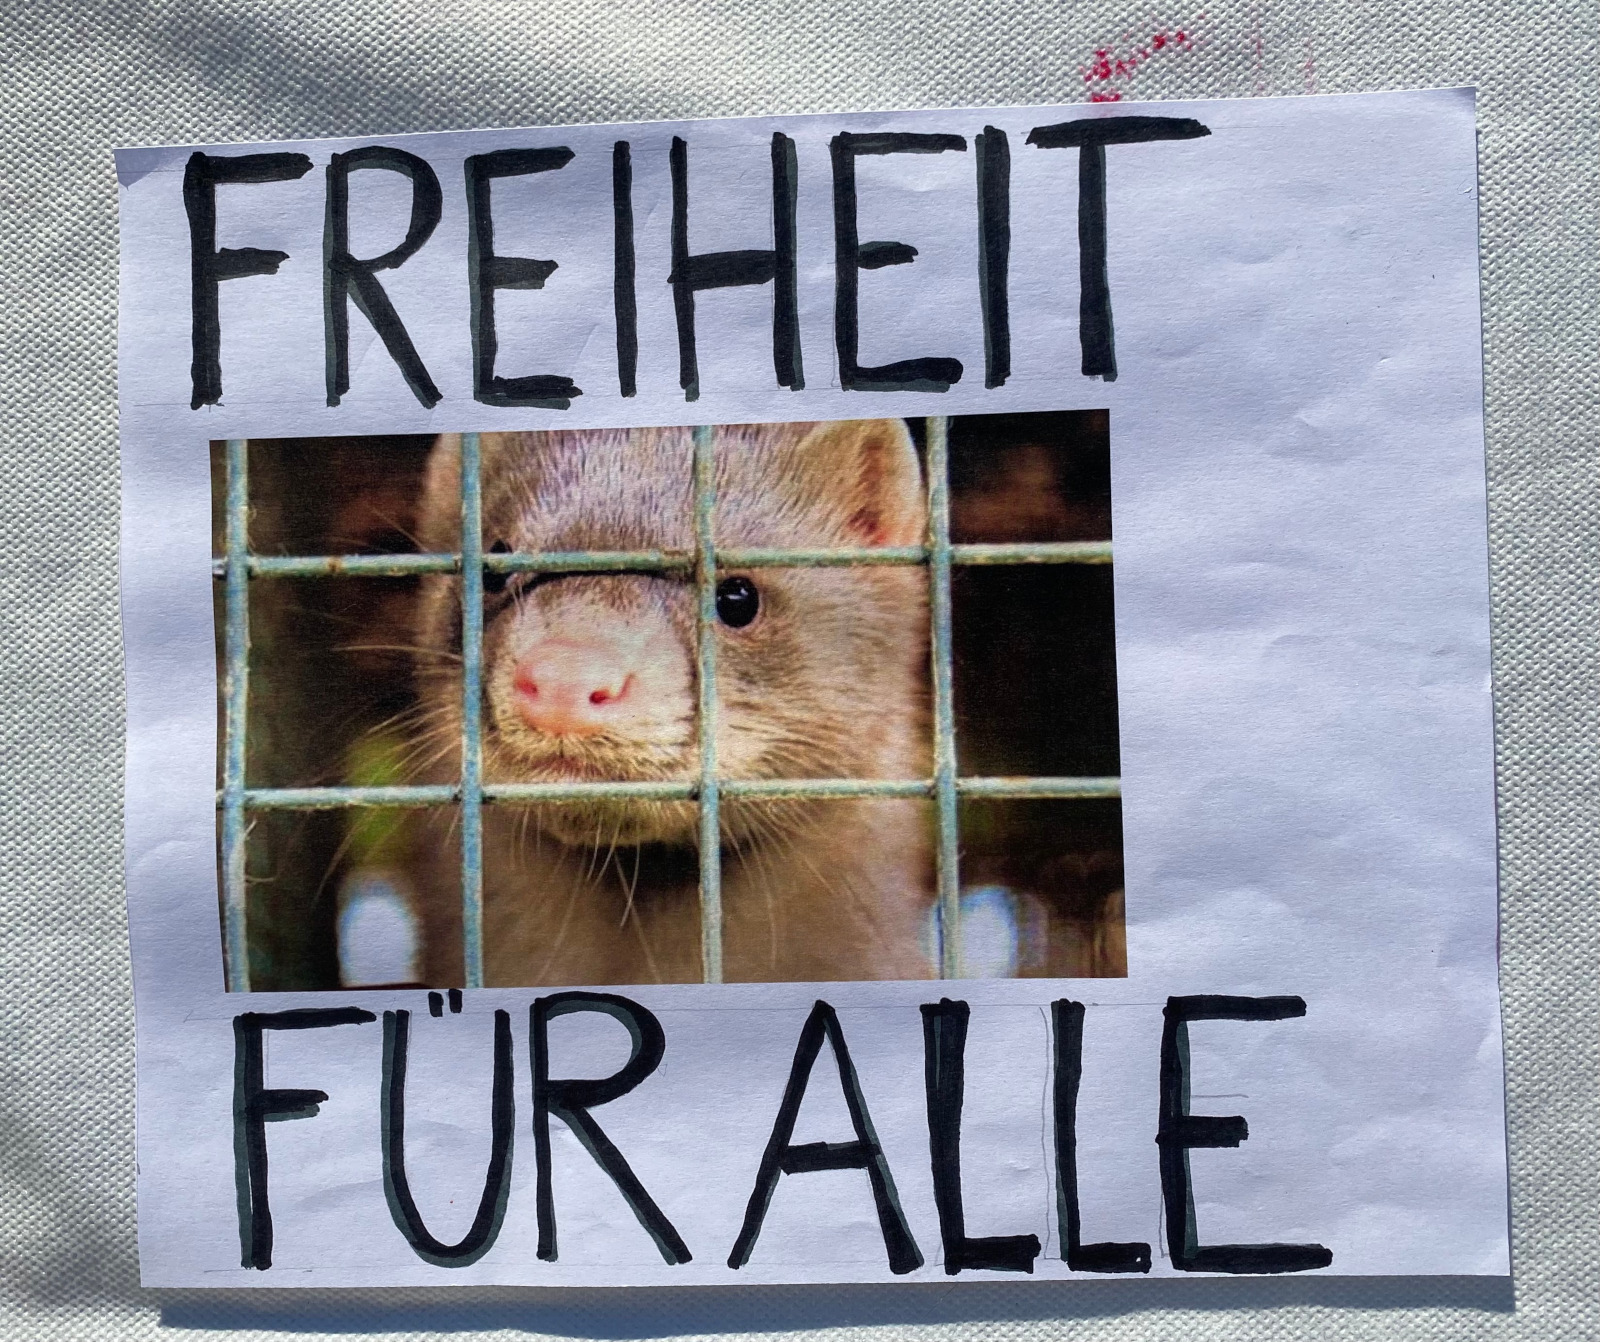 FREIHEIT
FÜR ALLE